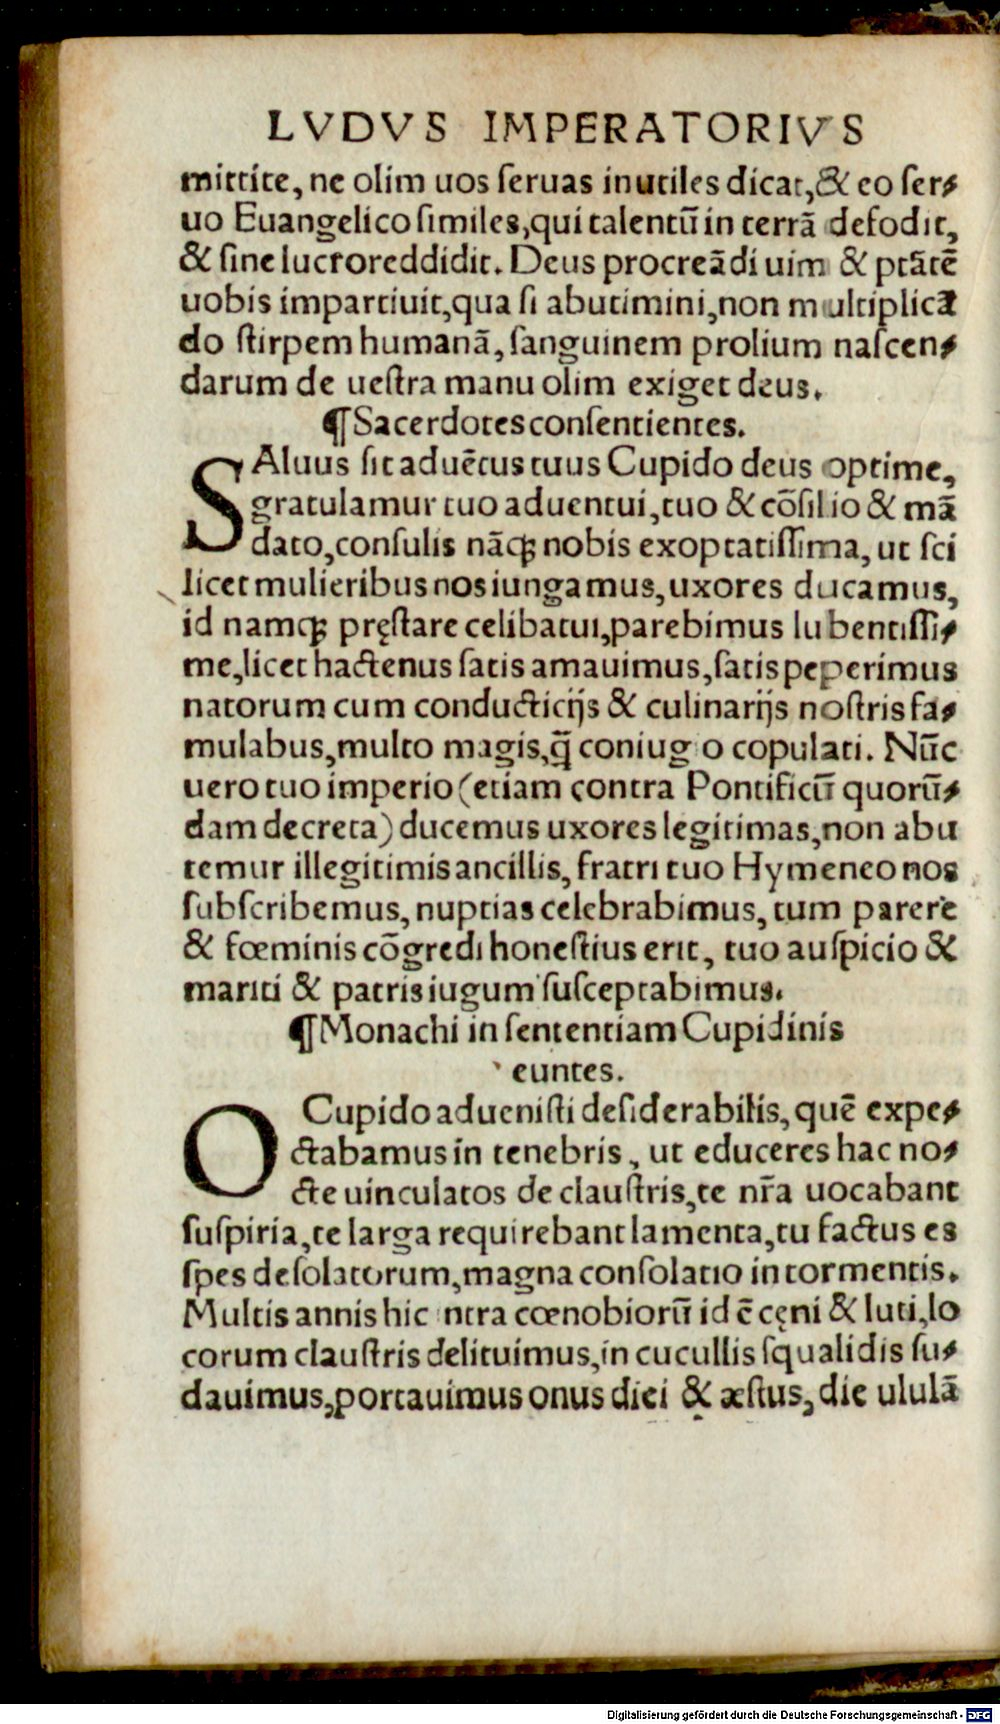 LVDVS IMPERATORIVS
mittite, ne olim uos seruas inutiles dicat, & eo ser⸗
uo Euangelico similes, qui talentū in terrā defodit,
& sine lucro reddidit. Deus procreādi uim & ptātē
uobis impartiuit, qua si abutimini, non multiplicā
do stirpem humanā, sanguinem prolium nascen⸗
darum de uestra manu olim exiget deus.
¶ Sacerdotes consentientes.
SAluus sit aduētus tuus Cupido deus optime,
gratulamur tuo aduentui, tuo & cōsilio & mā
dato, consulis nāqꝫ nobis exoptatissima, ut sci
licet mulieribus nos iungamus, uxores ducamus,
id namqꝫ pręstare celibatui, parebimus lubentissi⸗
me, licet hactenus satis amauimus, satis peperimus
natorum cum conducticijs & culinarijs nostris fa⸗
mulabus, multo magis, q̃ coniugio copulati. Nūc
uero tuo imperio (etiam contra Pontificū quorū⸗
dam decreta) ducemus uxores legitimas, non abu
temur illegitimis ancillis, fratri tuo Hymeneo nos
subscribemus, nuptias celebrabimus, tum parere
& fœminis cōgredi honestius erit, tuo auspicio &
mariti & patris iugum susceptabimus.
¶ Monachi in sententiam Cupidinis
euntes.
O Cupido aduenisti desiderabilis, quē expe⸗
ctabamus in tenebris, ut educeres hac no⸗
cte uinculatos de claustris, te nr̃a uocabant
suspiria, te larga requirebant lamenta, tu factus es
spes desolatorum, magna consolatio in tormentis.
Multis annis hic intra cœnobiorū id ē cęni & luti, lo
corum claustris delituimus, in cucullis squalidis su⸗
dauimus, portauimus onus diei & æstus, die ululā
Digitalisierung gefördert durch die Deutsche Forschungsgemeinschaft - DFG